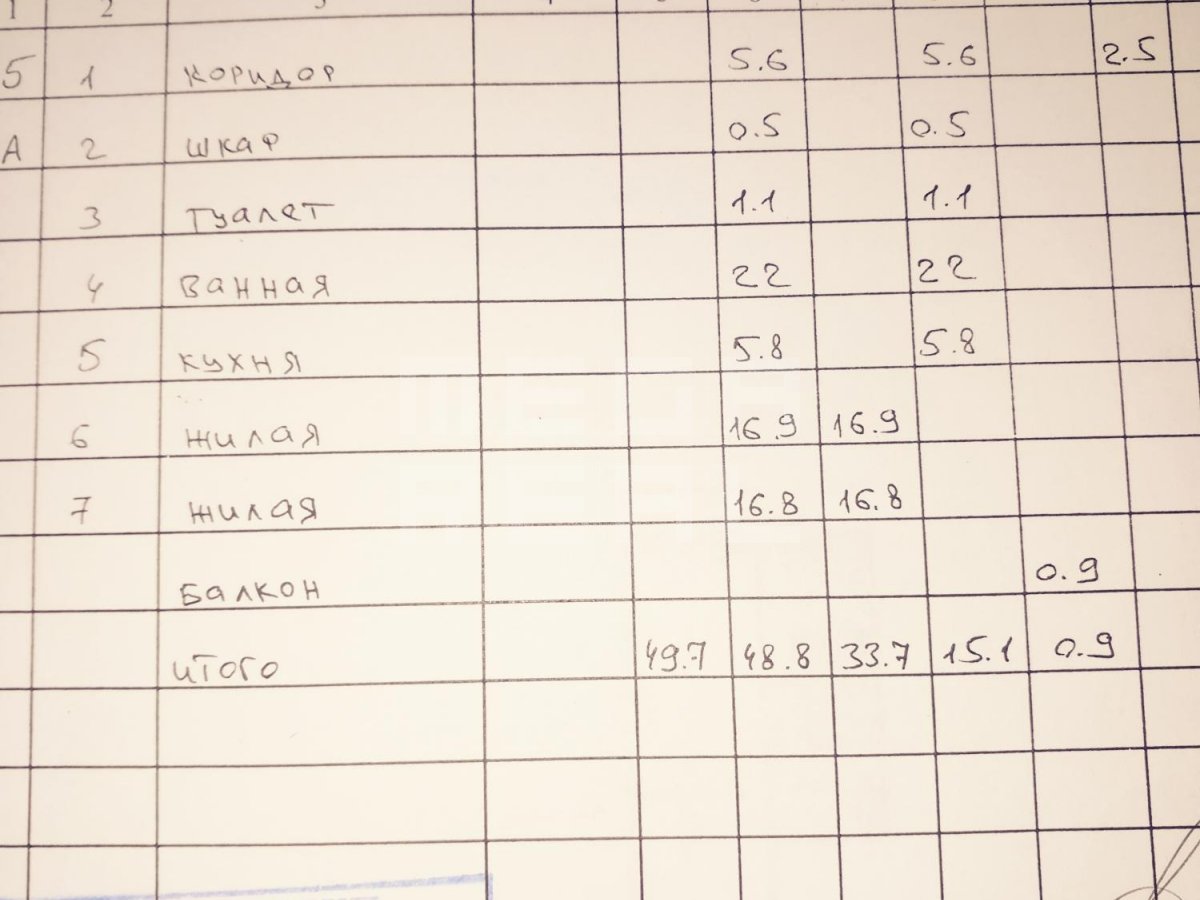 1 2 3
5 1 коридор 5.6 5.6 2.5
А 2 шкаф 0.5 0.5
3 туалет 1.1 1.1
4 ванная 22 22
5 кухня 5.8 5.8
6 жилая 16.9 16.9
7 жилая 16.8 16.8
Балкон 0.9
итого 49.7 48.8 33.7 15.1 0.9